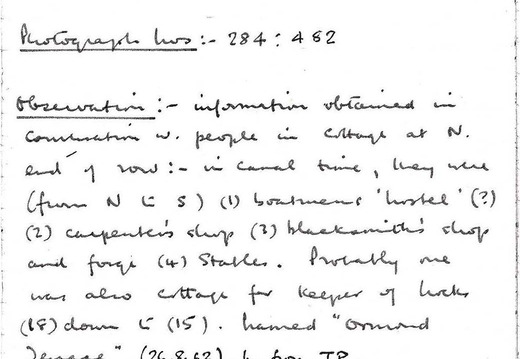 Photograph Nos :- 284 : 482
Observation :- information obtained in
conversation w. people in cottage at N.
end of row :- in canal time, they were
(from N to S) (1) boatmens 'hostel' (?)
(2) carpenter's shop (3) blacksmith's shop
and forge (4) Stables. Probably one
was also cottage for keeper of locks
(18) down to (15). Named "Ormond
Terrace" (26.8.62)